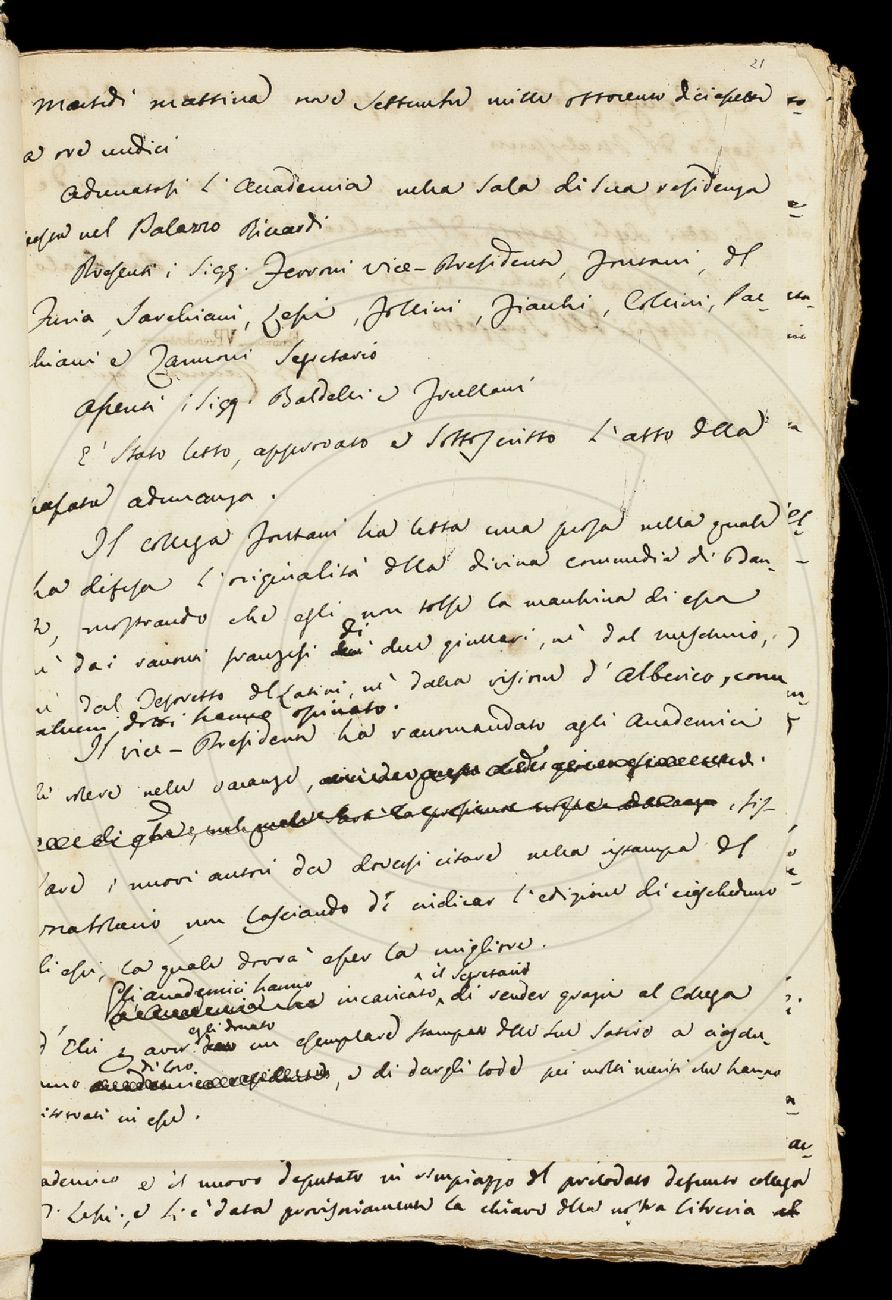 21
Martedì mattina nove Settembre mille ottocento diciassette
a ore undici
Adunatasi l'Accademia nella Sala di sua residenza
nel Palazzo Riccardi
Presenti i Sigg. Ferroni vice-Presidente, Fontani, del
Furia, Sarchiani, Lessi, Follini, Fiacchi, Collini, Pac-
chiani e Zannoni Segretario
Assenti i Sigg. Baldelli e Frullani
E' stato letto, approvato e sottoscritto l'atto della
passata adunanza.
Il collega Fontani ha letta una prosa nella quale
ha difesa l'originalità della divina commedia di Dan-
te, mostrando che egli non tolse la macchina di essa
nè dai racconti franzesi di due giullari, nè dal meschino,
nè dal Tesoretto del Latini, nè dalla visione d'Alberico, come
alcuni dotti hanno opinato.
Il vice-Presidente ha raccomandato agli Accademici
di volere nelle vacanze,
, fis-
sare i nuovi autori da doversi citare nella ristampa del
vocabolario, non lasciando di indicar l'edizione di ciascheduno
di essi, la quale dovrà esser la migliore.
Gli Accademici hanno
incaricato il Segretario di render grazie al Collega
d'Elci aver egli donato un esemplare stampato delle sue Satire a ciasche-
duno di loro, e di dargli lode pei molti meriti che hanno
ritrovati in esse.
accademico e il nuovo deputato in rimpiazzo del prelodato defunto collega
Lessi, e si è data provvisoriamente la chiave della nostra libreria al